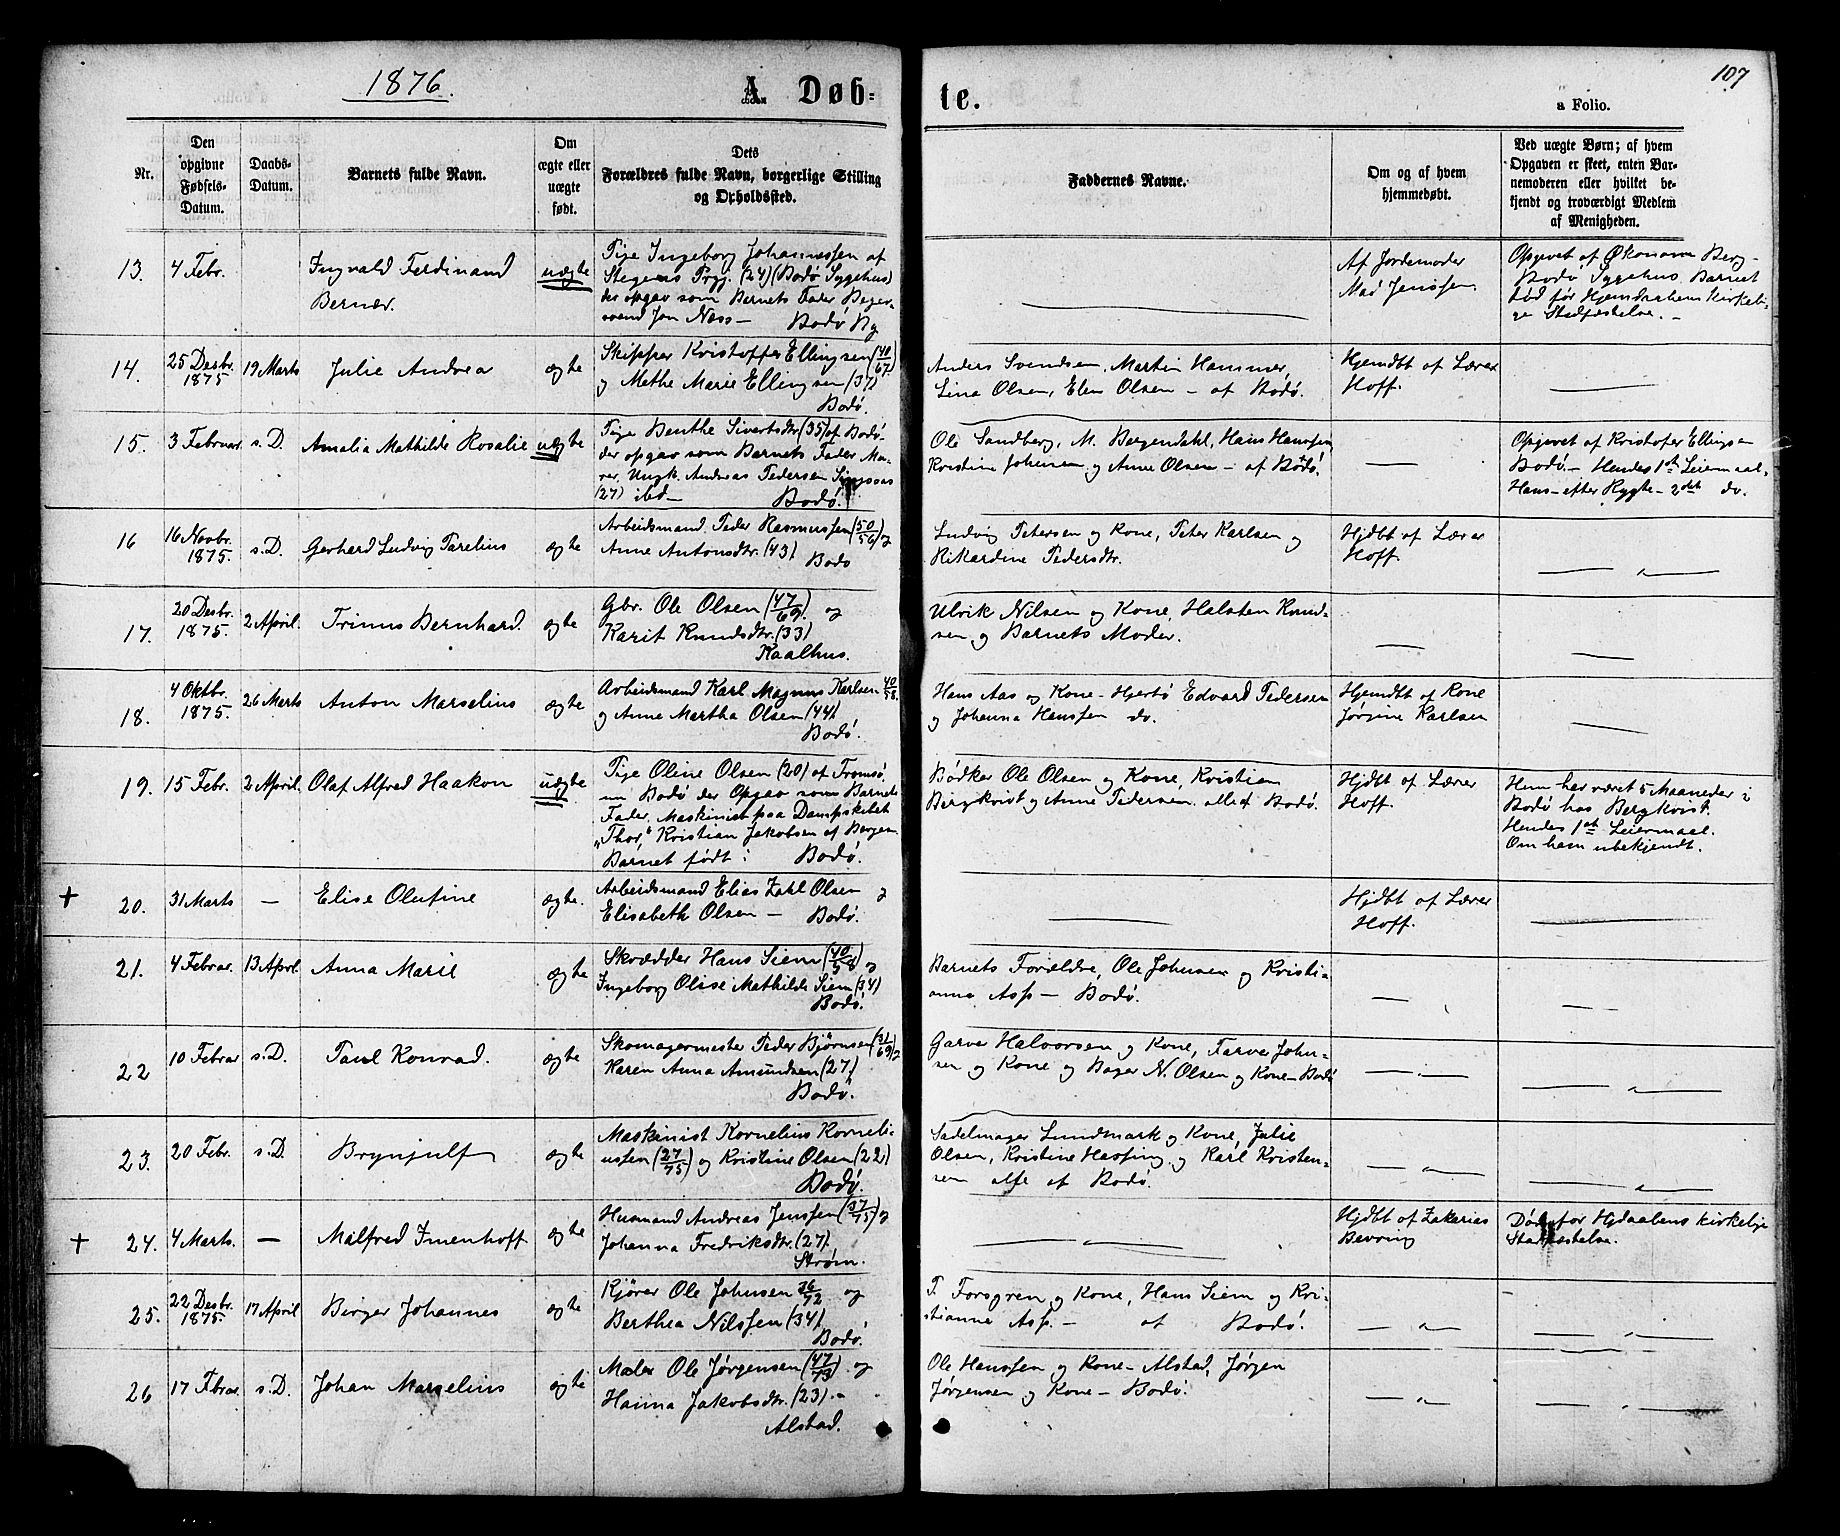 1876.
A. Døb-
te.
107
a Folio.
Nr.
Den
opgivne
Fødsels-
Datum.
Daabs-
Datum.
Barnets fulde Navn.
Om
ægte eller
uægte
født.
Dets
Forældres fulde Navn, borgerlige Stilling
og Opholdssted.
Faddernes Navne.
Om og af hvem
hjemmedøbt.
Ved uægte Børn; af hvem
Opgaven er skeet, enten Bar-
nemoderen eller hvilket be-
kjendt og troværdigt Medlem
af Menigheden.
13.
4 Febr.
Ingvald Ferdinand
Bernær.
uægte
Pige Ingeborg Johannessen af
Stegens Prgj. (24) (Bodø Sygehus)
der opgav som Barnets Fader Bager-
svend Jon Næss – Bodø By
Af Jordemoder
Mad Jenssen
Opgivet af Økonom Berg –
Bodø Sygehus. Barnet
død før Hjemdaabens kirkeli-
ge Stadfæstelse. –
14.
25 Desbr.
1875.
19 Marts
Julie Andrea
ægte
Skipper Kristoffer Ellingsen (40/67)
og Methe Marie Ellingsen (37)
Bodø.
Anders Svendsen, Martin Hammer,
Lina Olsen, Elen Olsen – af Bodø.
Hjemdbt af Lærer
Hoff.
15.
3 Februar
s. D.
Amalia Mathilde Rosalie
uægte
Pige Benthe Sivertsdtr (35) af Bodø –
der opgav som Barnets Fader Mu-
rer, Ungk. Andreas Pedersen
(27) ibd – Bodø.
Ole Sandberg, M. Bergendahl, Hans Hanssen,
Kristine Johnsen og Anne Olsen – af Bodø.
Opgivet af Kristofer Ellingsen
Bodø. – Hendes 1st Leiermaal.
Hans – efter Rygte – 2det do.
16
16 Novbr.
1875.
s. D.
Gerhard Ludvig Parelius
ægte
Arbeidsmand Peder Rasmussen (50/56) og
Anne Antonsdtr. (43)
Bodø
Ludvig Petersen og Kone, Peter Karlsen og
Rikardine Pedersdtr.
Hjdbt af Lærer
Hoff.
17.
20 Desbr.
1875.
2 April.
Trinus Bernhard.
ægte
Gbr. Ole Olsen (47/69) og
Karit Knudsdtr. (33)
Kaalhus.
Ulrik Nilsen og Kone, Halsten Knud-
sen og Barnets Moder.
18.
4 Oktbr.
1875.
26 Marts
Anton Marselius
ægte
Arbeidsmand Karl Magnus Karlsen 40/58.
og Anne Martha Olsen (44)
Bodø.
Hans Aas og Kone – Hjertø Edvard Pedersen
og Johanna Hanssen do.
Hjemdbt af Kone
Jørgine Karlsen
19.
15 Febr.
2 April.
Olaf Alfred Haakon
uægte
Pige Oline Olsen (20) af Tromsø,
nu Bodø der Opgav som Barnets
Fader, Maskinist paa Dampskibet
„Thor," Kristian Jakobsen af Bergen
Barnet født i Bodø.
Bødker Ole Olsen og Kone, Kristian
Bergkvist og Anne Pedersen. alle af Bodø.
Hjdbt af Lærer
Hoff.
Hun har været 5 Maaneder i
Bodø hos Bergkvist.
Hendes 1st Leiermaal.
Om ham ubekjendt.
+ 20.
31 Marts
—
Elise Olufine
ægte.
Arbeidsmand Elias Zakl Olsen og
Elisabeth Olsen – Bodø.
Hjdbt af Lærer
Hoff.
21.
4 Februar.
13 April.
Anna Marie
ægte
Skrædder Hans Siem (40/58) og
Ingeborg Olise Mathilde Siem (34)
Bodø.
Barnets Forældre, Ole Johnsen og Kristi-
anna Asp – Bodø.
22
10 Februar
s. D.
Paul Konrad.
ægte
Skomagermester Peder Bjørnsen (31/69) og
Karen Anna Amundsen (27)
Bodø.
Garver Halvorsen og Kone, Farver John-
sen og Kone og Bager N. Olsen og Kone – Bodø
23.
20 Febr.
s. D.
Brynjulf
ægte
Maskinist Kornelius Korneli-
ussen (27/75) og Kristine Olsen (22)
Bodø.
Sadelmager Lundmark og Kone, Julie
Olsen, Kristine Hassing og Karl Kristen-
sen alle af Bodø.
+ 24.
4 Marts.
—
Milfred Imenhoff
ægte
Husmand Andreas Jenssen (37/75) og
Johanna Fredriksdtr. (27)
Strøm.
Hjdbt af Zakarias
Bevring
Død før Hjdaabens kirkelige
Stadfæstelse.
25.
22 Desbr.
1875.
17 April
Birger Johannes
ægte
Kjører Ole Johnsen 36/72 og
Berthea Nilssen (34).
Bodø.
F. Forsgren og Kone, Hans Siem og Kri-
stianne Asp. – af Bodø.
26
17 Febrar
s. D.
Johan Marselius
ægte
Maler Ole Jørgensen (47/73). og
Hanna Jakobsdtr. (23). –
Alstad.
Ole Hanssen og Kone – Alstad, Jørgen
Jørgensen og Kone – Bodø.